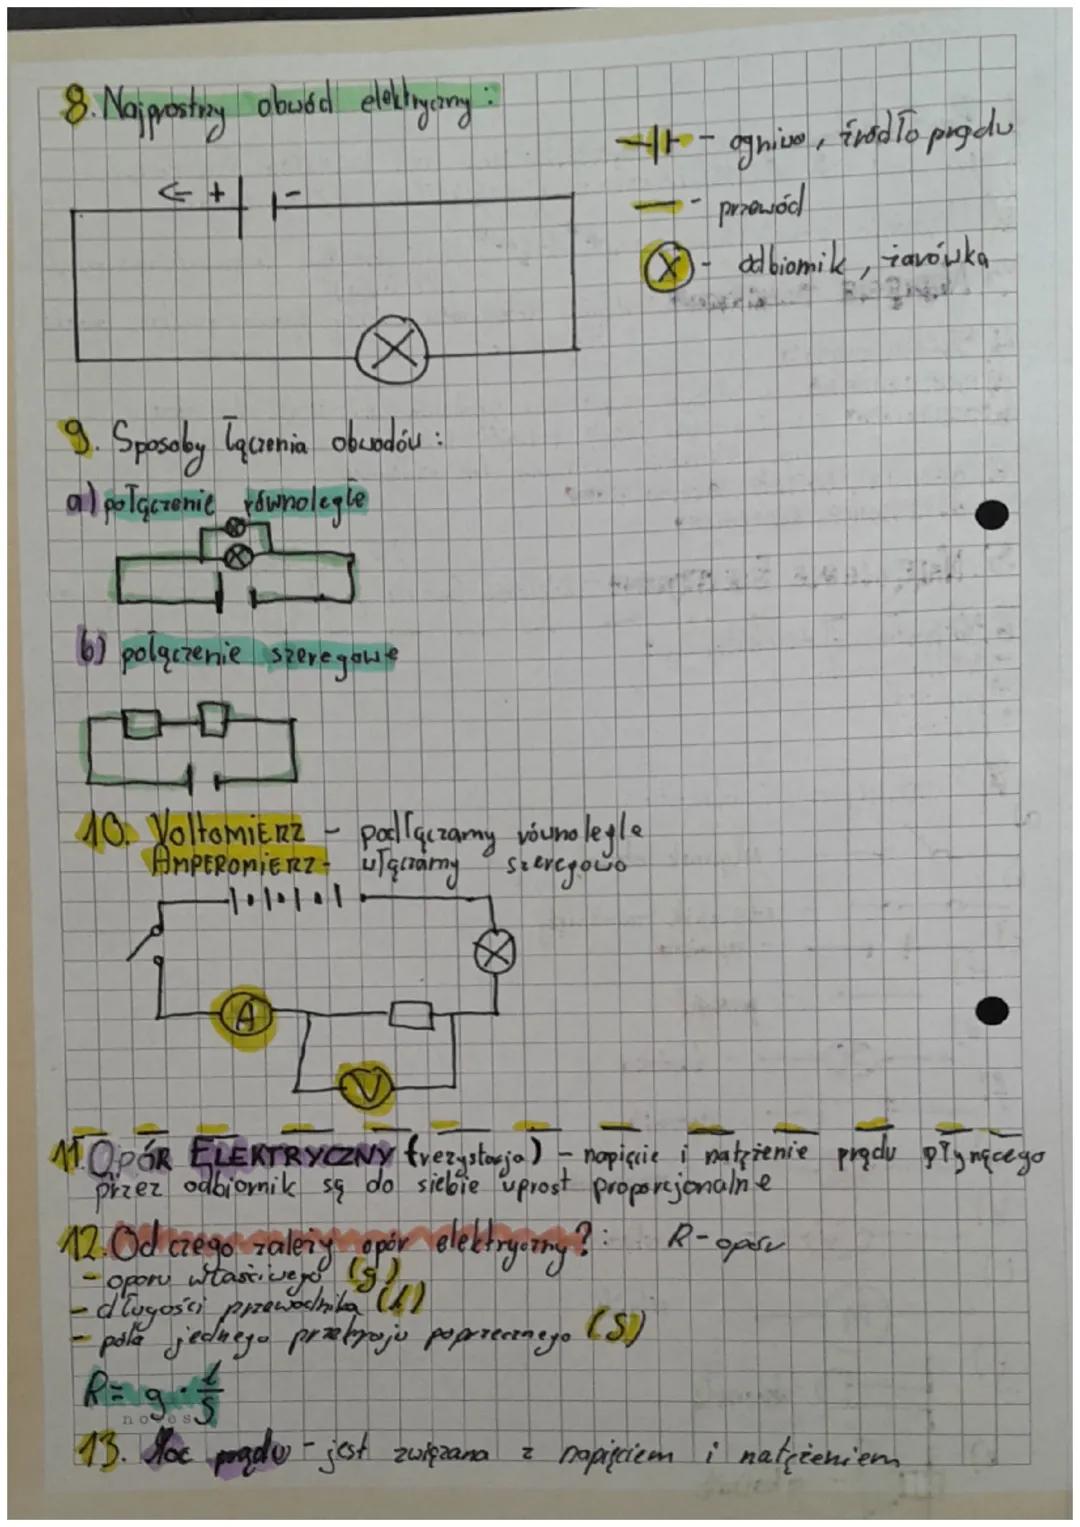 8. Najprostrzy obwód elektryczny:
← + -
- ogniwo, źródło prądu
- przewód
- odbiornik, żarówka
9. Sposoby łączenia obwodów:
a) połączenie równoległe
b) połączenie szeregowe
10. VoltomiERZ - podłączamy równolegle
AMPEROMiERZ - włączamy szeregowo
A
V
11. OpÓR ELEKTRYCZNY (rezystancja) - napięcie i natężenie prądu płynącego
przez odbiornik są do siebie uprost proporcjonalne
12. Od czego zależy opór elektryczny?: R - oporu
- oporu właściwego (g)
- długości przewodnika (l)
- pola jednego przekroju poprzecznego (S)
R = g · l/S
notes
13. Moc prądu - jest związana z napięciem i natężeniem